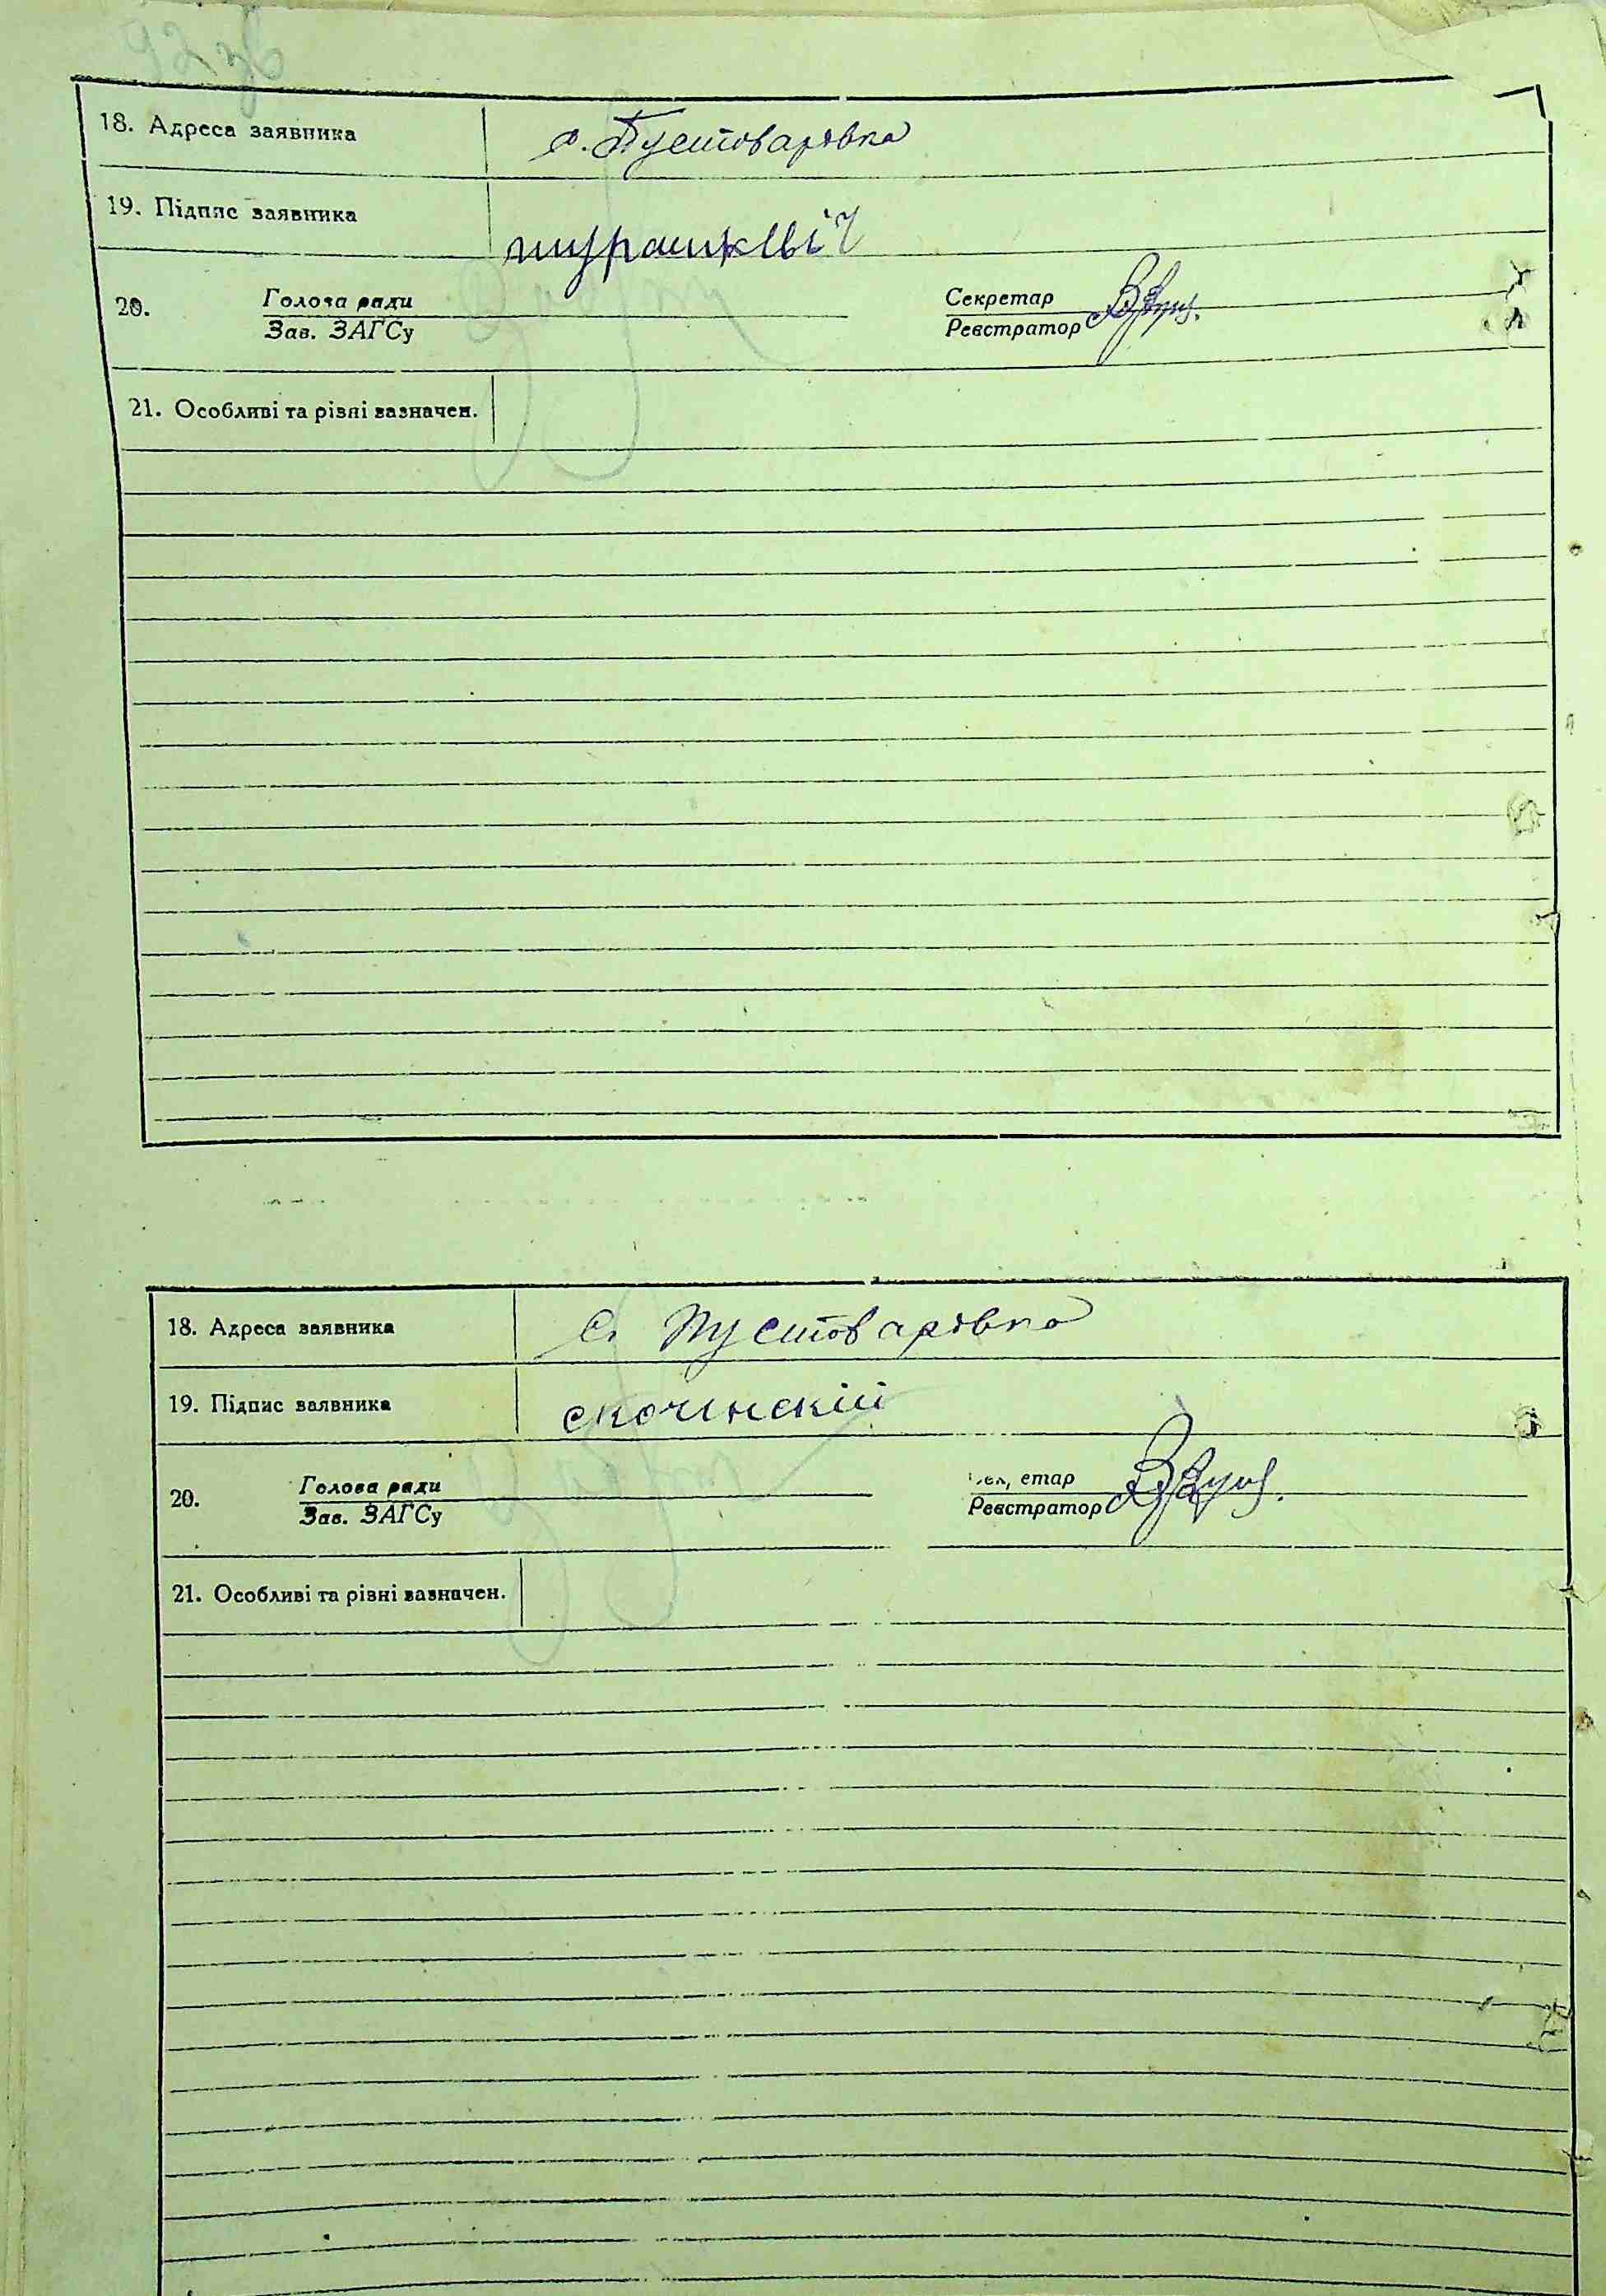 92 зв
18. Адреса заявника с. Пустоварівка
19. Підпис заявника
20. Голова ради Секретар
Зав. ЗАГСу Реєстратор
21. Особливі та різні зазначен.
18. Адреса заявника с. Пустоварівка
19. Підпис заявника скочинскій
20. Голова ради
Зав. ЗАГСу Реєстратор
21. Особливі та різні зазначен.